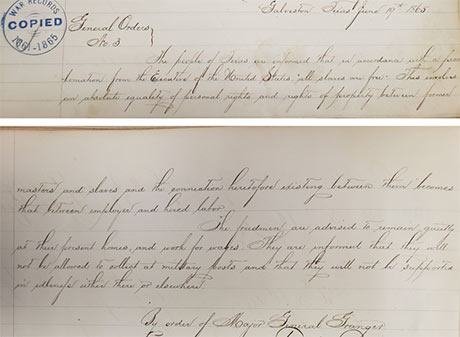 WAR RECORDS
COPIED
1861-1865
Galveston Texas June 19th 1865.
General Orders
No. 3
The people of Texas are informed that in accordance with a proc
lamation from the Executive of the United States "all slaves are free." This involves
an absolute equality of personal rights and rights of property between former
masters and slaves and the connection heretofore existing between them becomes
that between employer and hired labor.
The freedmen are advised to remain quietly
at their present homes and work for wages. They are informed that they will
not be allowed to collect at military posts and that they will not be supported
in idleness either there or elsewhere.
By order of Major General Granger